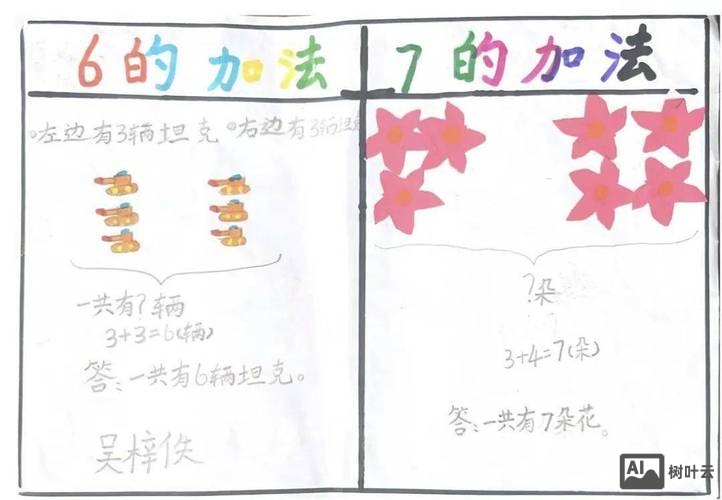 6的加法
左边有3辆坦克 右边有3辆坦克
一共有?辆
3+3=6(辆)
答:一共有6辆坦克。
吴梓佚
7的加法
?朵
3+4=7(朵)
答:一共有7朵花。
AI 树叶云